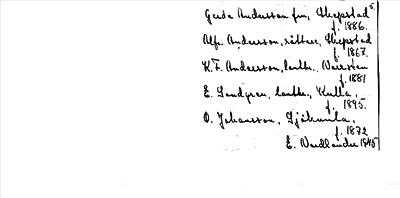 Gerda Andersson fru, Skepstad
f. 1886.
Alfr. Andersson, rättare, Skepstad
f. 1867.
K. F. Andersson, lantbr.,
f. 1881
E. Landgren, lantbr., Kulla,
f. 1895.
O. Johansson,
f. 1872
E. Nordlander 1945